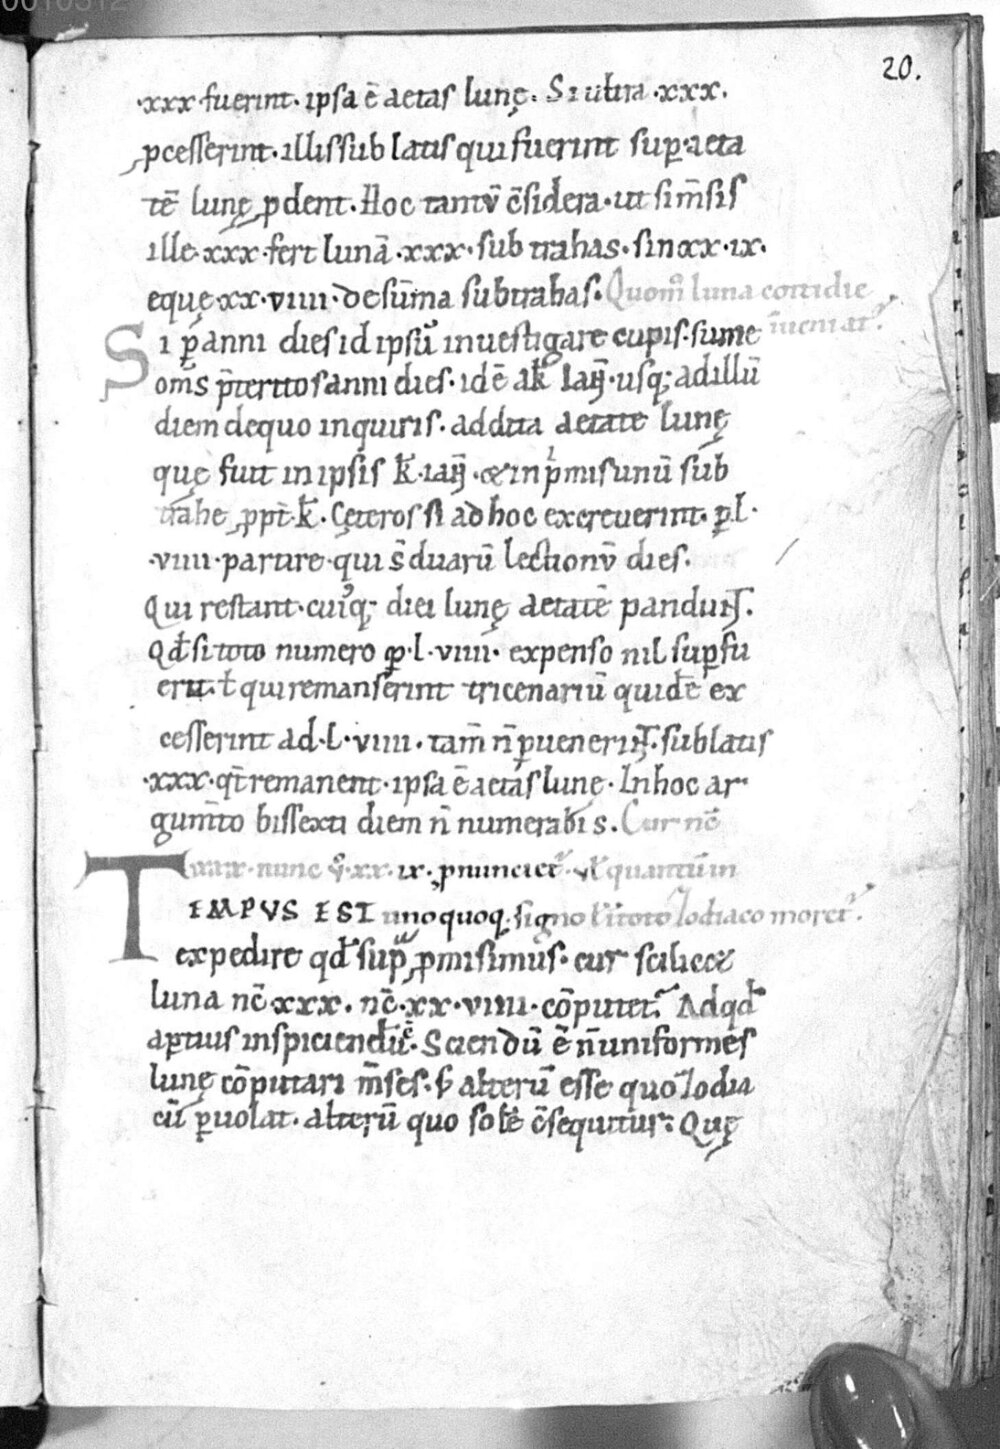 0010312
20.
·xxx·fuerint·ipsa ē aetas lunę. Si ultra ·xxx.
pcesserint·illis sublatis qui fuerint sup·aeta
tē lunę pdent. Hoc tantū c̄sidera·ut si m̄sis
ille·xxx·fert lunā·xxx·subtrahas·sin xx·ix.
eque·xx·viiii·de sūma subtrahas. Quom̊ luna cottidie
Si p anni dies id ipsū inuestigare cupis·sume īueniat̃?
om̄s p̄teritos anni dies·id ē a kƚ Iaŋ·usq; ad illū
diem de quo inquiris·addita aetate lunę
quę fuit in ipsis kƚ·iaŋ·& in pⁱmis unū sub
trahe ppt̄·kƚ. Cęteros si ad hoc excreuerint·p·l·
·viiii·partire·qui s̄ duarū lectionū dies.
Qui restant·cuiꝰq; diei lunę aetatē pandunt.
Qđ si toto numero p·l·viiii· expenso nil supfu
erit·ƚ qui remanserint tricenariū quidē ex
cesserint ad·l·viiii·tam̄ n̄ puenerint·sublatis
·xxx·qđ remanent·ipsa ē aetas lunę. In hoc ar
gum̄to bissexti diem n̄ numerabis. Cur nc̄
xxx·nunc ů·xx·ix·pnunciet̃·uƚ quantū in
TEMPUS EST unoquoq; signo ƚ ī toto zodiaco moret̃.
expedire qđ supᵃ pmisimus· cur scilicet
luna nc̄ xxx. nc̄·xx·viiii·cōputet̃. Ad qđ
aptius inspiciendū ē·Sciendū ē n̄ uniformes
lunę cōputari m̄ses· s; alterū esse quo zodia
cū puolat·alterū quo solē c̄sequitur: Quę